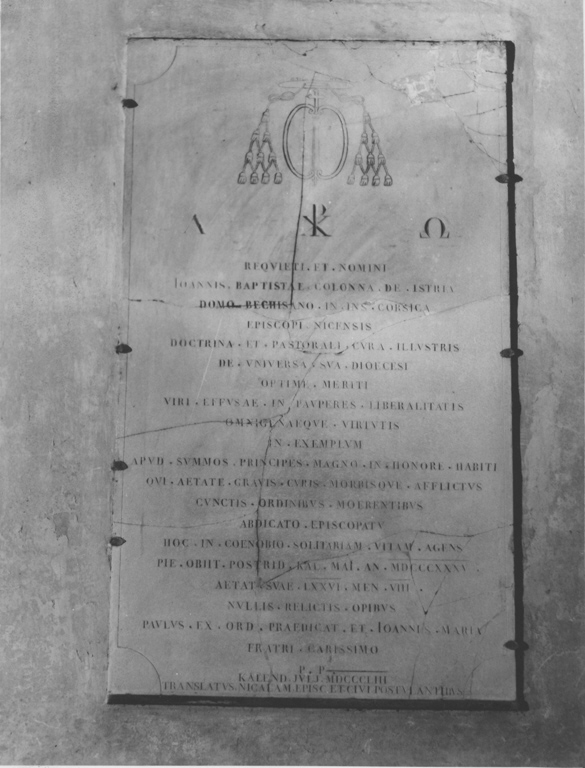 Α ☧ Ω
REQVIETI · ET · NOMINI
IOANNIS · BAPTISTAE · COLONNA · DE · ISTRIA
DOMO · BECHISANO · IN · INS · CORSICA
EPISCOPI · NICENSIS
DOCTRINA · ET · PASTORALI · CVRA · ILLVSTRIS
DE · VNIVERSA · SVA · DIOECESI
OPTIME · MERITI
VIRI · EFFVSAE · IN · PAVPERES · LIBERALITATIS
OMNIGENAEQVE · VIRTVTIS
IN · EXEMPLVM
APVD · SVMMOS · PRINCIPES · MAGNO · IN · HONORE · HABITI
QVI · AETATE · GRAVIS · CVRIS · MORBISQVE · AFFLICTVS
CVNCTIS · ORDINIBVS · MOERENTIBVS
ABDICATO · EPISCOPATV
HOC · IN · COENOBIO · SOLITARIAM · VITAM · AGENS
PIE · OBIIT · POSTRID · KAL · MAI · AN · MDCCCXXXV
AETAT · SVAE · LXXVI · MEN · VIII
NVLLIS · RELICTIS · OPIBVS
PAVLVS · EX · ORD · PRAEDICAT · ET · IOANNES · MARIA
FRATRI · CARISSIMO
P · P
KALEND. JVLJ. MDCCCLIII
TRANSLATVS. NICAEAM. EPISC. ET CIVI. POSTVLANTIBVS